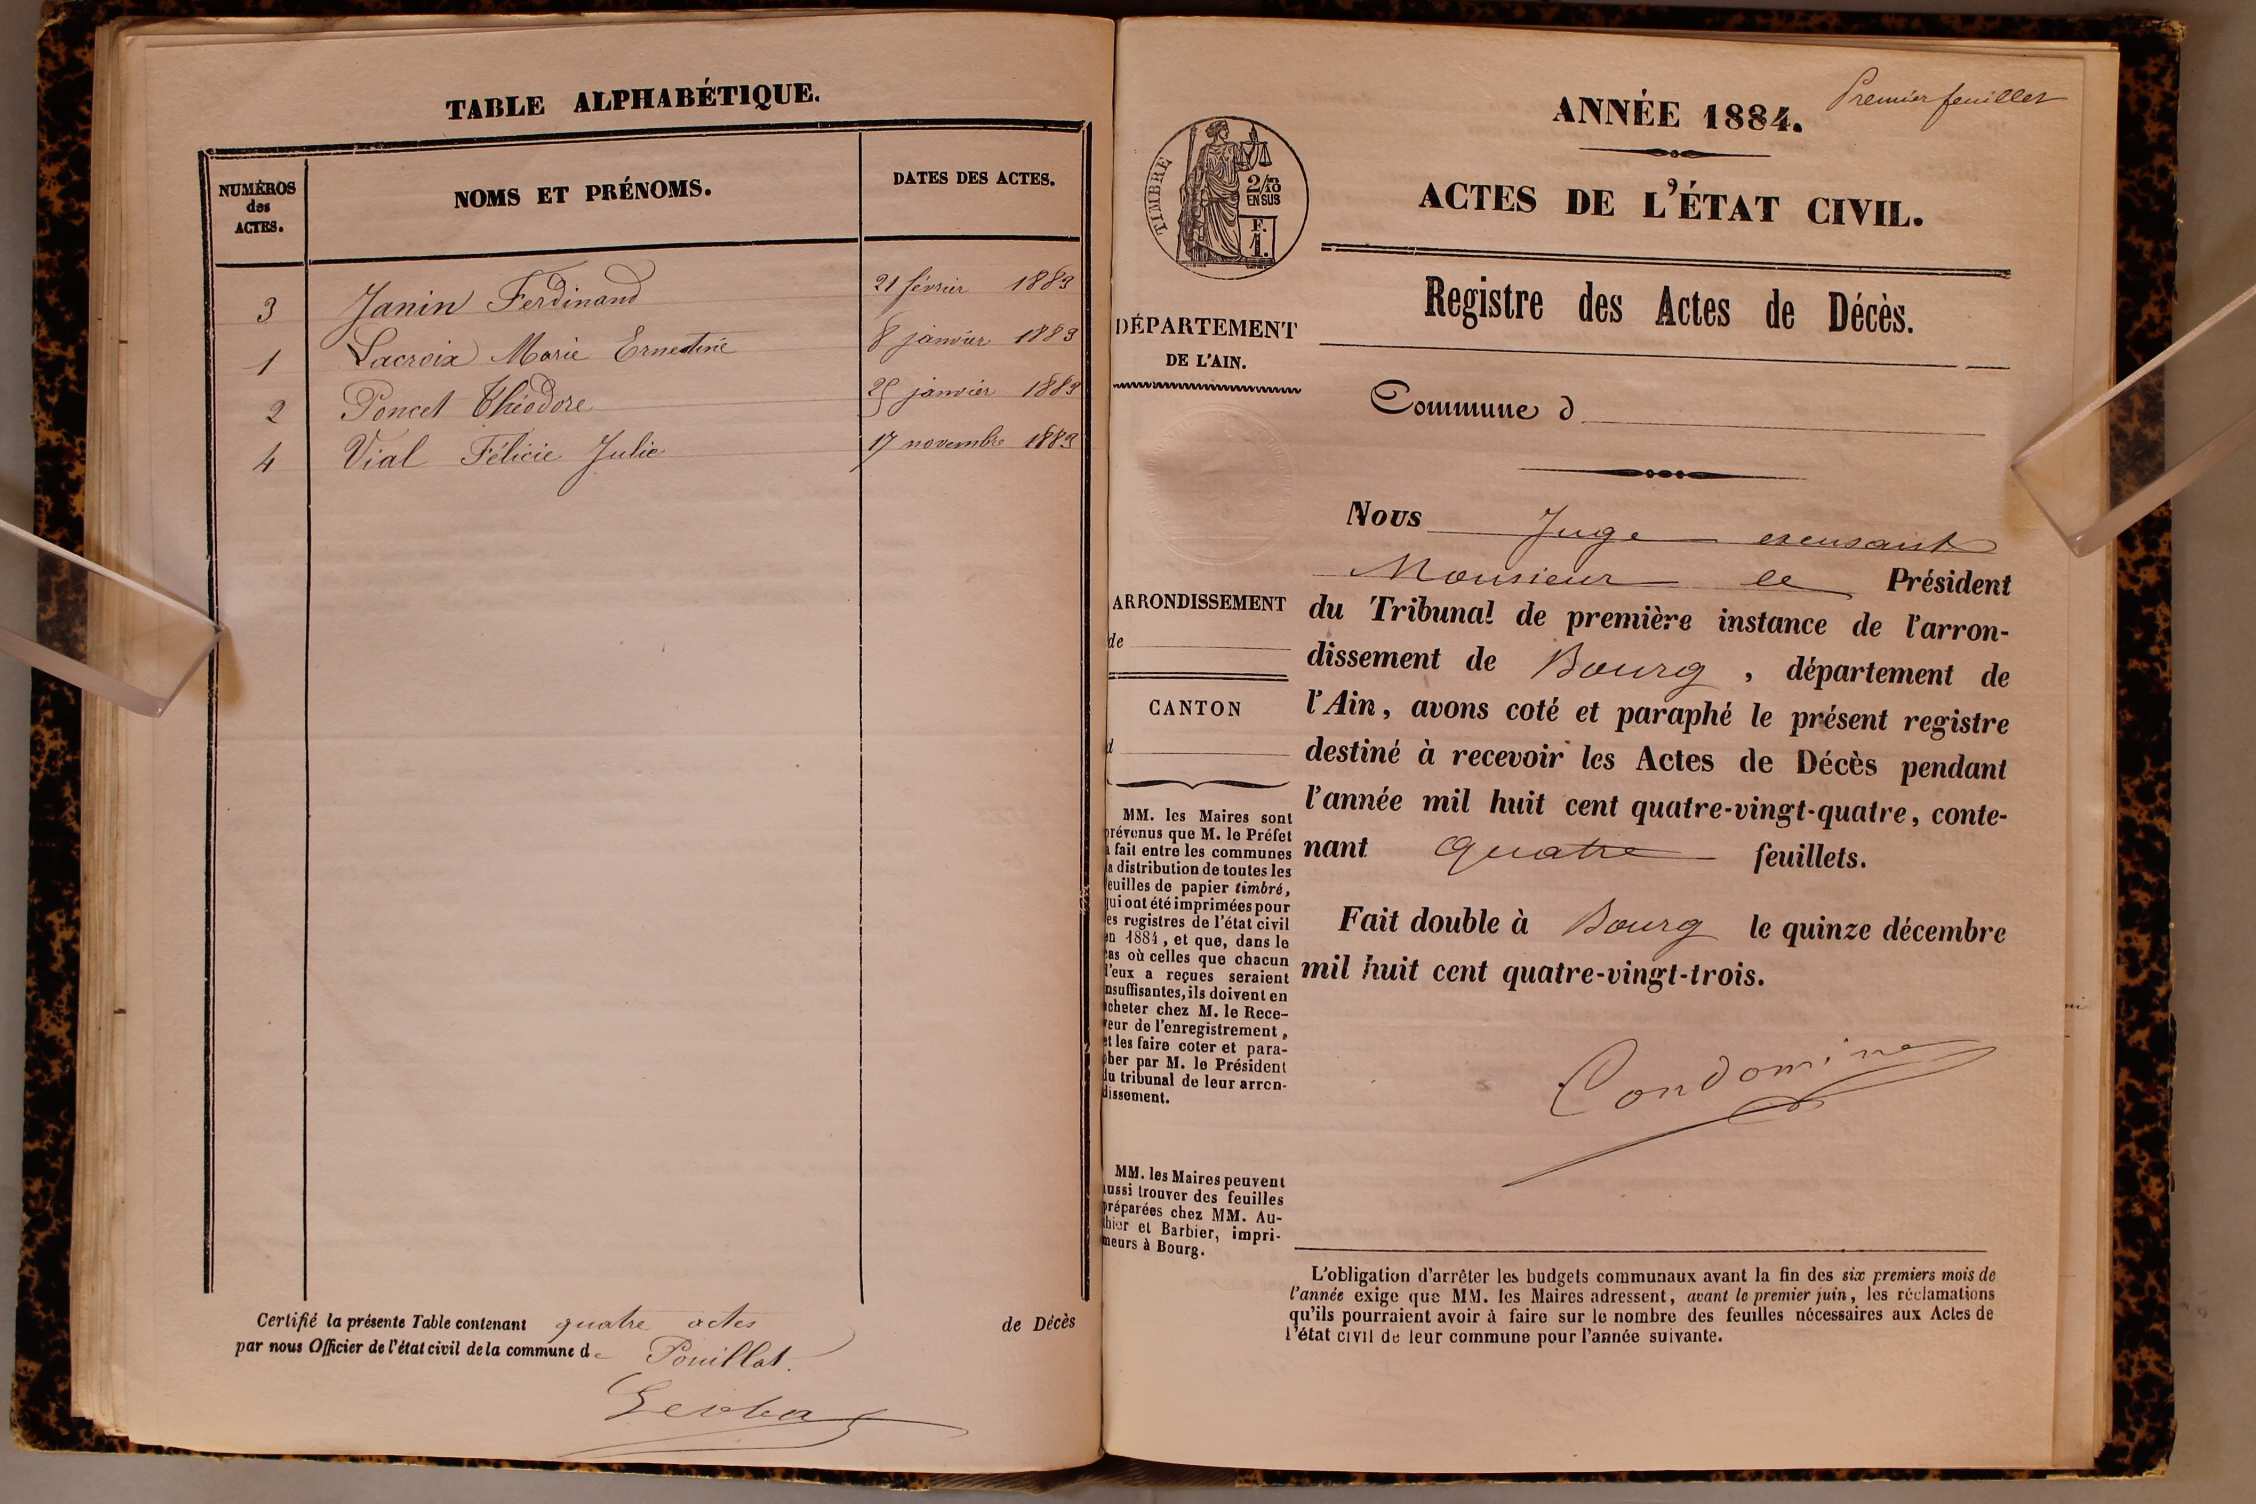 TABLE ALPHABÉTIQUE.
NUMÉROS
des
ACTES.
NOMS ET PRÉNOMS.
DATES DES ACTES.
3 Janin Ferdinand 21 février 1883
1 Lacroix Marie Ernestine 8 janvier 1883
2 Poncet Théodore 25 janvier 1883
4 Vial Félicie Julie 17 novembre 1883
Certifié la présente Table contenant quatre actes de Décès
par nous Officier de l'état civil de la commune de Pouillat.
Premier feuillet
ANNÉE 1884.
ACTES DE L'ÉTAT CIVIL.
TIMBRE
2/10
EN SUS
F.
1.
DÉPARTEMENT
DE L'AIN.
ARRONDISSEMENT
de
CANTON
d
MM. les Maires sont
prévenus que M. le Préfet
a fait entre les communes
la distribution de toutes les
feuilles de papier timbré,
qui ont été imprimées pour
les registres de l'état civil
en 1884, et que, dans le
cas où celles que chacun
d'eux a reçues seraient
insuffisantes, ils doivent en
acheter chez M. le Rece-
veur de l'enregistrement,
et les faire coter et para-
pher par M. le Président
du tribunal de leur arron-
dissement.
MM. les Maires peuvent
aussi trouver des feuilles
préparées chez MM. Au-
thier et Barbier, impri-
meurs à Bourg.
Registre des Actes de Décès.
Commune d
Nous Juge excusant
Monsieur le Président
du Tribunal de première instance de l'arron-
dissement de Bourg, département de
l'Ain, avons coté et paraphé le présent registre
destiné à recevoir les Actes de Décès pendant
l'année mil huit cent quatre-vingt-quatre, conte-
nant quatre feuillets.
Fait double à Bourg le quinze décembre
mil huit cent quatre-vingt-trois.
Condomine
L'obligation d'arrêter les budgets communaux avant la fin des six premiers mois de
l'année exige que MM. les Maires adressent, avant le premier juin, les réclamations
qu'ils pourraient avoir à faire sur le nombre des feuilles nécessaires aux Actes de
l'état civil de leur commune pour l'année suivante.